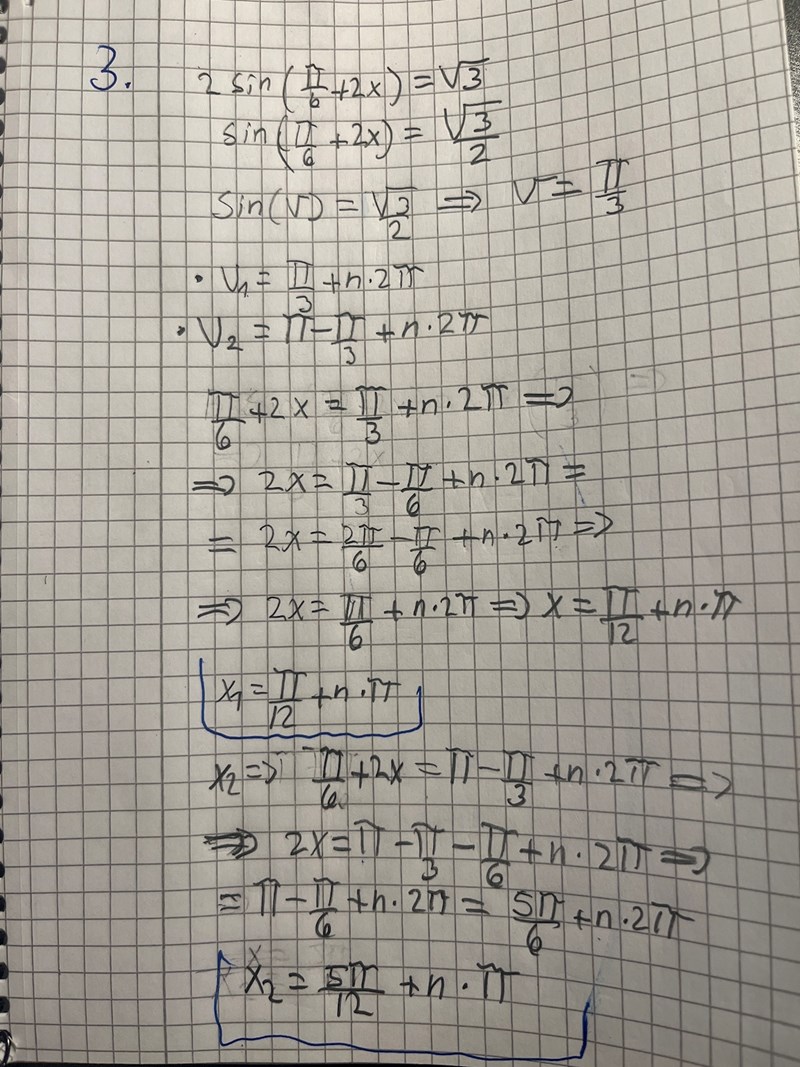 3. 2 sin(π/6 + 2x) = √3
sin(π/6 + 2x) = √3/2
Sin(V) = √3/2 ⇒ V = π/3
• V₁ = π/3 + n·2π
• V₂ = π - π/3 + n·2π
π/6 + 2x = π/3 + n·2π ⇒
⇒ 2x = π/3 - π/6 + n·2π =
= 2x = 2π/6 - π/6 + n·2π ⇒
⇒ 2x = π/6 + n·2π ⇒ x = π/12 + n·π
x₁ = π/12 + n·π
x₂ ⇒ π/6 + 2x = π - π/3 + n·2π ⇒
⇒ 2x = π - π/3 - π/6 + n·2π ⇒
= π - π/6 + n·2π = 5π/6 + n·2π
x₂ = 5π/12 + n·π